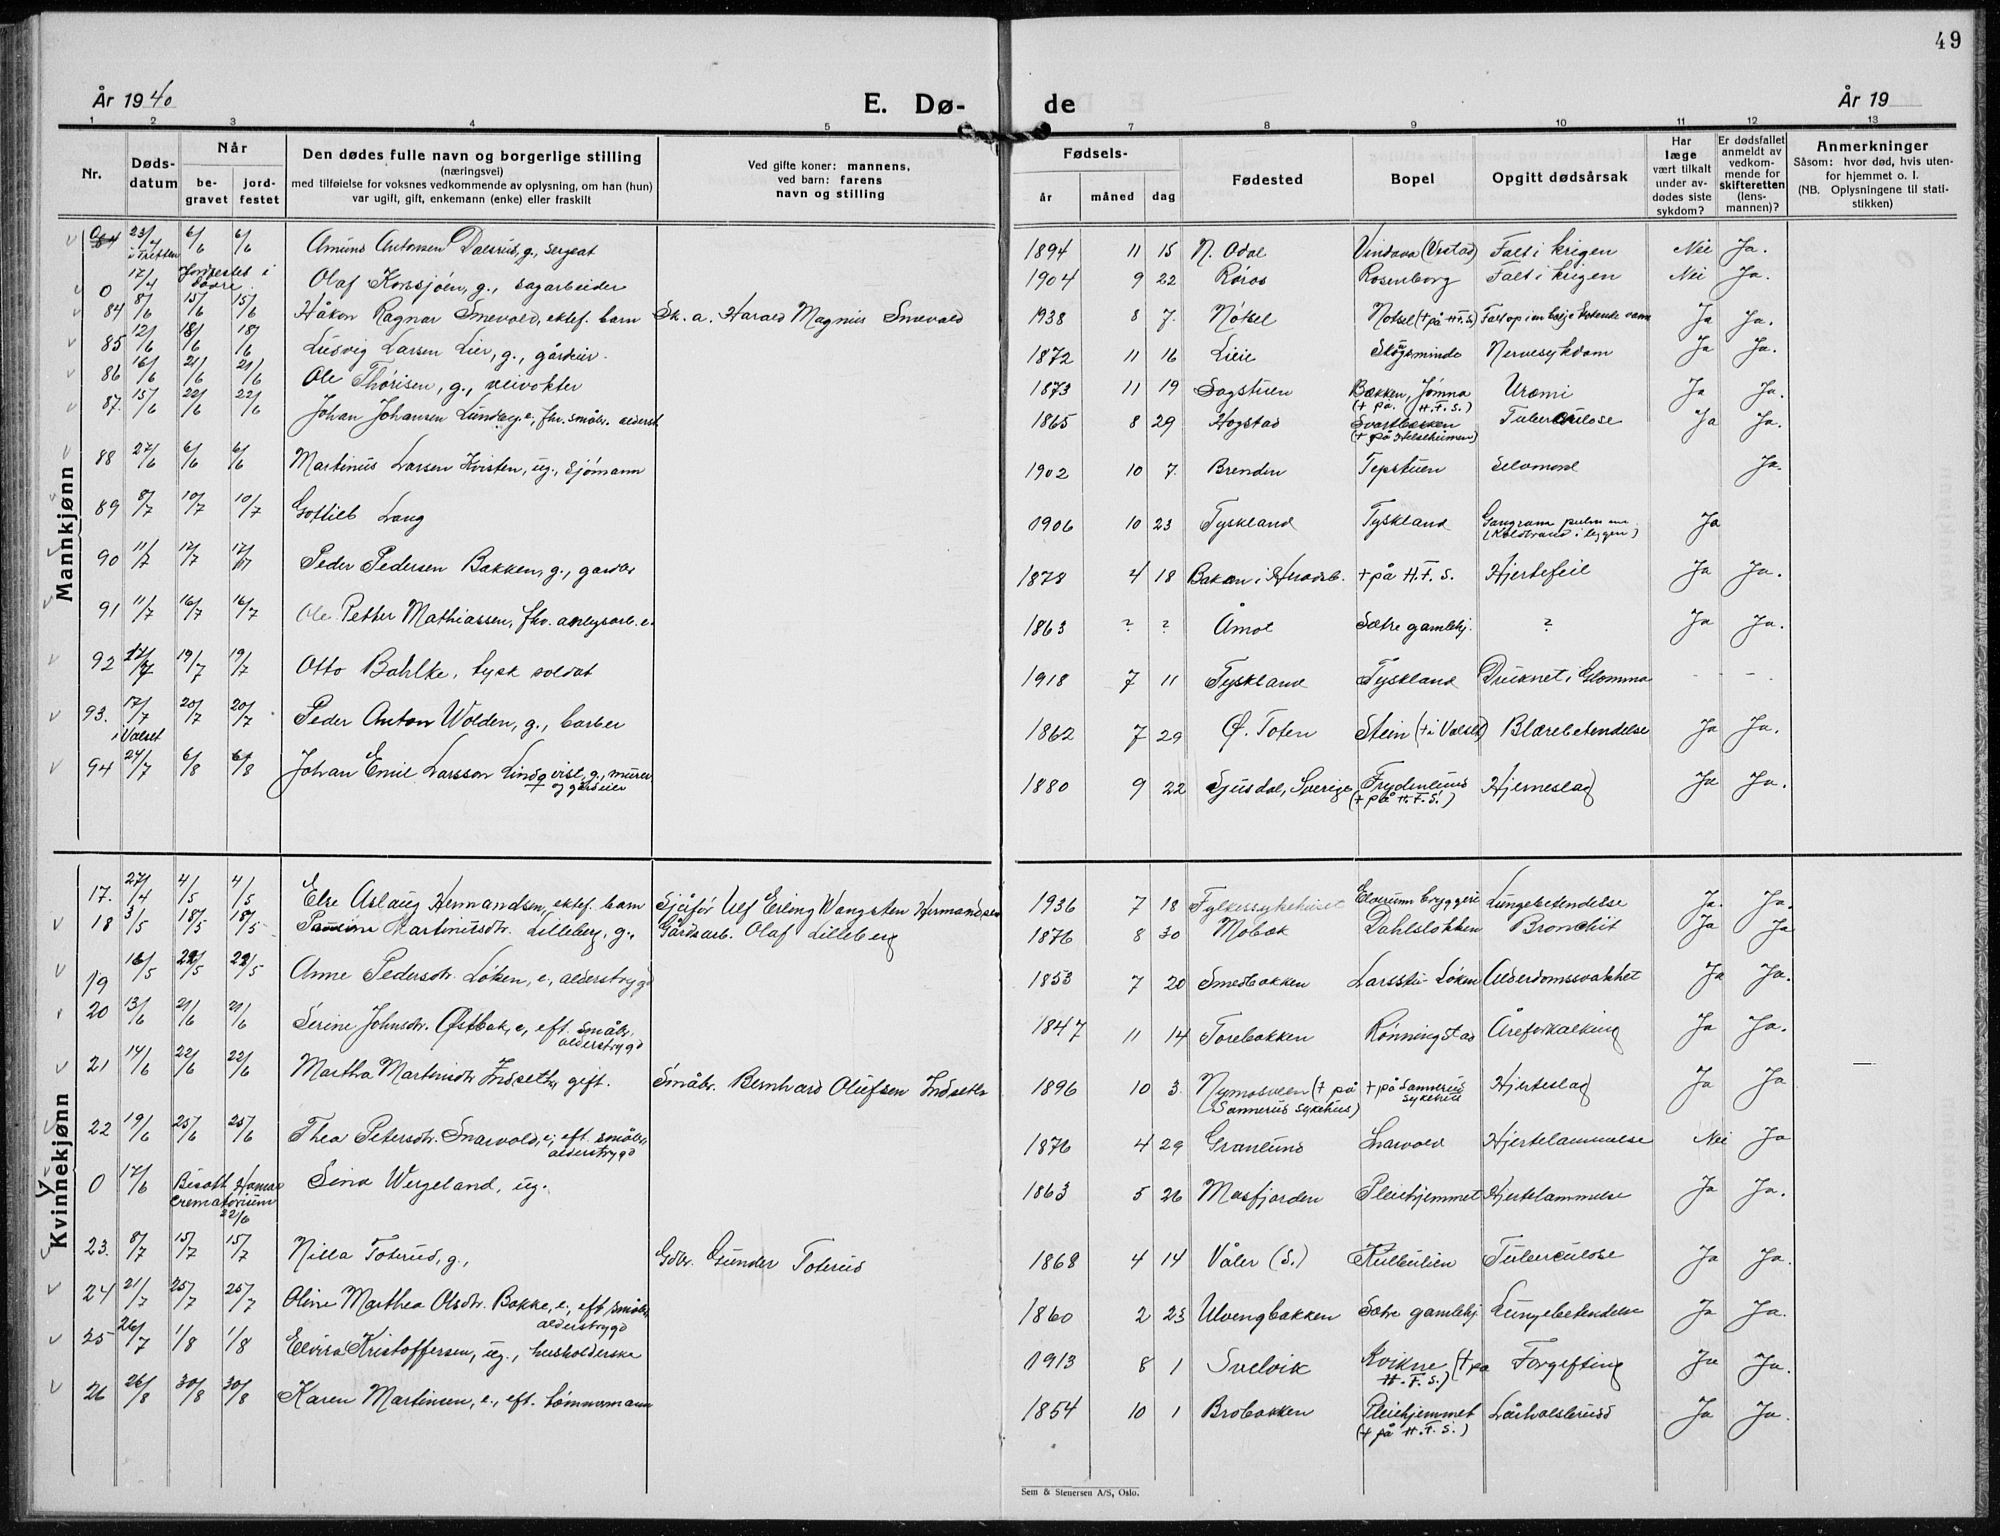 49
År 1940
E. Dø-
de
År 19
1 2 3 4 5 7 8 9 10 11 12 13
Nr.
Døds-
datum
Når
be-
gravet
jord-
festet
Den dødes fulle navn og borgerlige stilling
(næringsvei)
med tilføielse for voksnes vedkommende av oplysning, om han (hun)
var ugift, gift, enkemann (enke) eller fraskilt
Ved gifte koner: mannens,
ved barn: farens
navn og stilling
Fødsels-
år
måned
dag
Fødested
Bopel
Opgitt dødsårsak
Har
læge
vært tilkalt
under av-
dødes siste
sykdom?
Er dødsfallet
anmeldt av
vedkom-
mende for
skifteretten
(lens-
mannen)?
Anmerkninger
Såsom: hvor død, hvis uten-
for hjemmet o. l.
(NB. Oplysningene til stati-
stikken)
Mannkjønn
0 23/4 i Tretten 6/6 6/6 Amund Antonsen Dalsrud, g., sergeat 1894 11 15 N. Odal Vindava (Vestad) Falt i krigen Nei Ja.
0 17/4 Jordfestet i Dovre Olaf Korssjøen, g., sagarbeider 1904 9 22 Røros Rosenborg Falt i krigen Nei Ja.
84 8/6 15/6 15/6 Håkon Ragnar Smevold, ektef. barn Sk. a. Harald Magnus Smevold 1938 8 7. Nötsel Nötsel (+ på H.F.S) Falt op i en balje kokende vann Ja Ja.
85 12/6 18/6 18/6 Ludvig Larsen Lier, g., gårdeier. 1872 11 16 Lieie Skögsminde Nervesykdom Ja Ja.
86 16/6 21/6 21/6 Ole Thorisen, g., veivokter 1873 11 19 Sagstuen Bækken, Jømna (+ på H.F.S.) Uræmi Ja Ja.
87. 15/6 22/6 22/6 Johan Johansen Lundby, e., fhv. småbr. alderst. 1865 8 29 Hogstad Svartbækken (+ på Helseheimen) Tuberculose Ja Ja.
88 27/6 6/6 6/6 Martinus Larsen Kvisten, ug., sjömann 1902 10 7. Brenden Tepstuen Selvmord Ja.
89 8/7 10/7 10/7 Gottlieb Lang 1906 10 23 Tyskland Tyskland (Koldbrand i leggen) Ja
90 11/7 17/7 17/7 Peder Pedersen Bakken, g., gardbr 1878 4 18 Bakken i Heradsb. + på H.F.S. Hjertefeil Ja Ja.
91 11/7 16/7 16/7 Ole Petter Mathiassen, fhv. anlegsarb. e. 1863 ? ? Åmot Sætre gamlehj. ? Ja Ja.
92 17/7 19/7 19/7 Otto Bahlke, tysk soldat 1918 7 11 Tyskland Tyskland Druknet i Glomma - - -
93. 17/7 i Valset 20/7 20/7 Peder Anton Wolden, g., barber 1862 7 29 Ø. Toten Stein (+ i Valset) Blærebetendelse Ja Ja.
94 24/7 6/8 6/8 Johan Emil Larsson Lindqvist, g., murer og gårdeier 1880 9 22 Ljusdal, Sverige Frydenlund (+ på H.F.S.) Hjerneslag Ja Ja.
Kvinnekjønn
17. 27/4 4/5 4/5 Else Aslaug Hermandsen, ektef. barn Sjåfør Ulf Erling Wangsten Hermandsen 1936 7 18 Fylkessykehuset Elverum bryggeri Lungebetendelse Ja. Ja.
18 3/5 18/5 18/5 Martinusdtr. Lilleberg, g., Gårdsarb. Olaf Lilleberg 1876 8 30 Mobæk Dahlslökken Bronchit Ja Ja
19 16/5 22/5 22/5 Anne Pedersdtr. Løken, e., alderstrygd 1853 7 20 Smedbakken Larsstu-Løken Alderdomssvakhet Ja Ja
20 13/6 21/6 21/6 Serine Johnsdtr. Østbak, e., eft. småbr. alderstrygd 1847 11 14 Torebakken Rønningstad Åreforkalkning Ja Ja.
21 14/6 22/6 22/6 Martha Martinsdtr Indseth, gift. Småbr. Bernhard Olufsen Indseth 1896 10 3. Nymosveen (+ på Sannerud sykehus) + på Sannerud sykehus Hjerteslag Ja Ja —
22 19/6 25/6 25/6 Thea Petersdtr. Snarvold, e., eft. småbr. alderstrygd 1876 4 29 Granlund Snarvold Hjertelammelse Nei Ja
0 17/6 Bisatt Hamar Crematorium 22/6 Sina Wergeland, ug. 1863 5 26 Masfjorden Pleiehjemmet Hjertelammelse Ja Ja.
23. 8/7 15/7 15/7 Nilla Toterud, g., Gdbr. Gunder Toterud 1868 4 14 Våler (S.) Kulbulien Tuberculose Ja Ja.
24 21/7 25/7 25/7 Oline Marthea Olsdtr. Bakke, e., eft. småbr. alderstrygd 1860 2 23 Ulvengbakken Sætre gamlehj. Lungebetendelse Ja Ja.
25 26/7 1/8 1/8 Elvira Kristoffersen, ug., husholderske 1913 8 1 Svelvik Kvikne (+ på H.F.S.) Forgifting Ja Ja.
26 26/8 30/8 30/8 Karen Martinsen, e., eft. tømmermann 1854 10 1 Brobakken Pleiehjemmet (+ på H.F.S.) Lårhalsbrudd Ja Ja.
Sem & Stenersen A/S, Oslo.